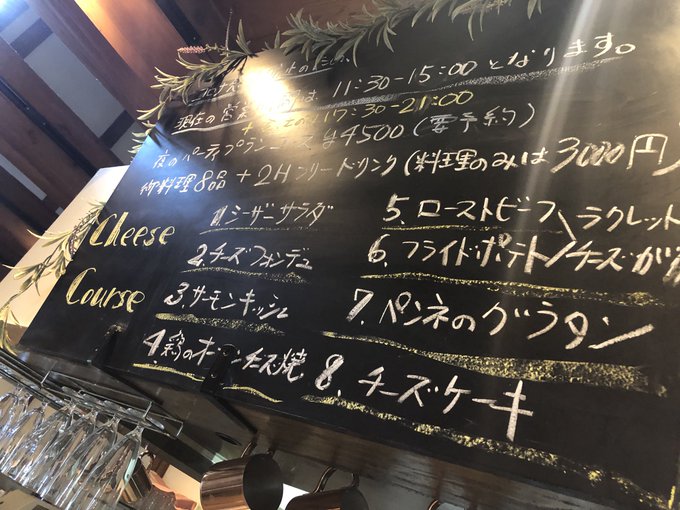 11:30-15:00 となります。
現在の営業
17:30-21:00
夜のパーティプラン ¥4500 (要予約)
御料理8品 + 2Hフリードリンク (料理のみは3000円
Cheese
Course
1.シーザーサラダ
2.チーズフォンデュ
3.サーモンキッシュ
4.鶏の チーズ焼
5.ローストビーフ
6.フライドポテト
ラクレット
チーズが
7.ペンネのグラタン
8.チーズケーキ